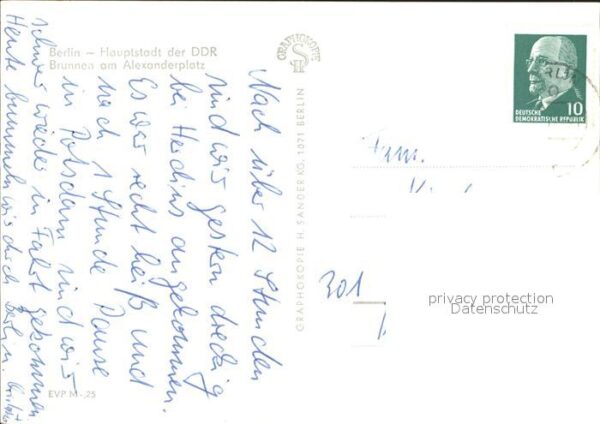 Berlin – Hauptstadt der DDR
Brunnen am Alexanderplatz
GRAPHOKOPIE
GRAPHOKOPIE H. SANDER KG, 1071 BERLIN
DEUTSCHE
DEMOKRATISCHE REPUBLIK
10
Nach über 12 Stunden
sind wir gestern dreckig
bei Hedins angekommen.
Es war recht heiß und
nach 1 Stunde Pause
in Potsdam sind wir
schwer wieder in Fahrt gekommen.
Heute bummeln wir durch Berlin.
Fam.
301
privacy protection
Datenschutz
EVP M -,25